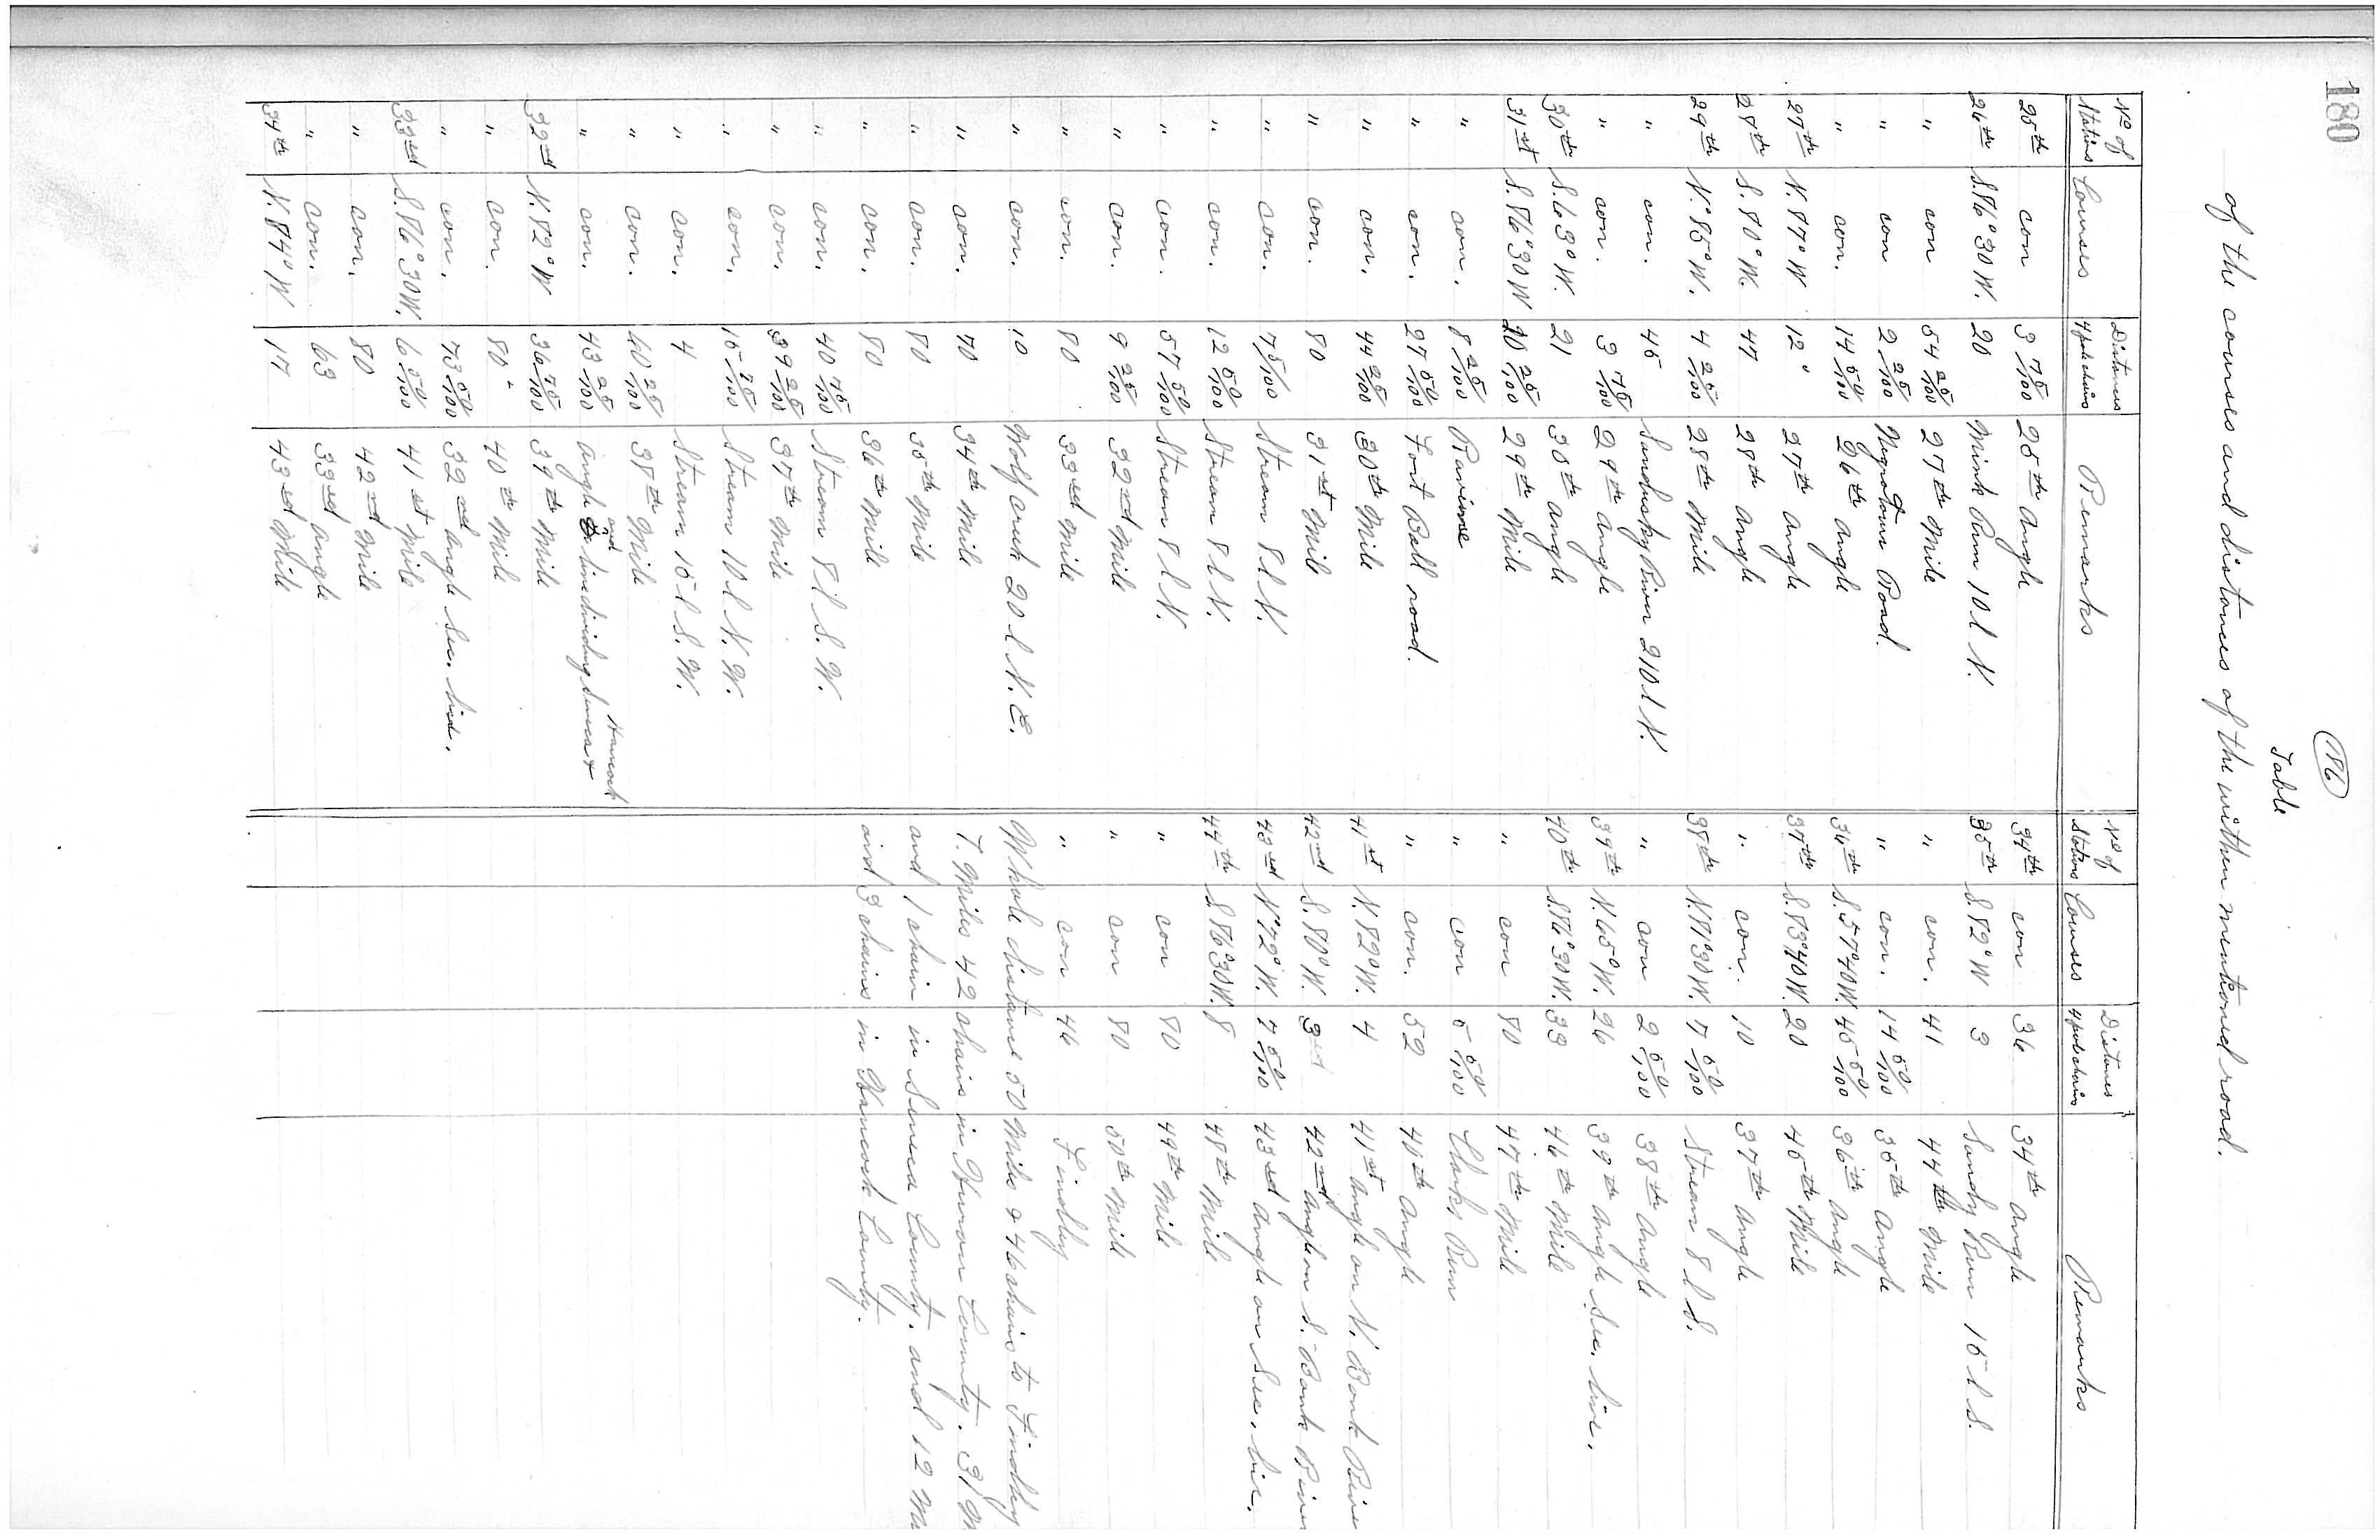 180
(186)
Table
of the courses and distances of the within mentioned road.
No of Stations Courses Distances 4 pole chains Remarks
25th con 3 75/100 25th Angle
26th S.86°30 W. 20 Mink Run 10 l N.
" con 54 25/100 27th Mile
" con 2 25/100 Negrotown Road.
" con. 14 50/100 26th Angle
27th N.87° W 12 27th Angle
28th S.80° W. 47 28th Angle
29th N.85° W. 4 25/100 28th Mile
" con. 45 Sandusky River 210 l N.
" con. 3 75/100 29th Angle
30th S.63° W. 21 30th Angle
31st S.86°30 W 20 25/100 29th Mile
" con. 8 25/100 Ravine
" con. 27 50/100 Fort Ball road.
" con. 44 25/100 30th Mile
" con. 80 31st Mile
" con. 75/100 Stream 8 l N.
" con. 12 50/100 Stream 8 l N.
" con. 57 50/100 Stream 8 l N.
" con. 9 25/100 32nd Mile
" con. 80 33rd Mile
" con. 10 Wolf creek 20 l N.E.
" con. 70 34th Mile
" con. 80 35th Mile
" con. 80 36th Mile
" con. 40 75/100 Stream 8 l S.W.
" con. 39 25/100 37th Mile
" con. 15 75/100 Stream 10 l N.W.
" con. 4 Stream 15 l S.W.
" con. 60 25/100 38th Mile
" con. 43 25/100 Angle and line dividing Seneca & Hancock
32nd N.82° W 36 75/100 39th Mile
" con. 80 40th Mile
" con. 73 50/100 32nd Angle Sec. line.
33rd S.86°30 W. 6 50/100 41st Mile
" con. 80 42nd Mile
" con. 63 33rd Angle
34th N.84° W 17 43rd Mile
No of Stations Courses Distances 4 pole chains Remarks
34th con 36 34th Angle
35th S.82° W 3 Sandy Run 15 l S.
" con. 41 44th Mile
" con. 14 50/100 35th Angle
36th S.57°40 W. 45 50/100 36th Angle
37th S.83°40 W. 20 45th Mile
" con. 10 37th Angle
38th N.81°30 W. 7 50/100 Stream 8 l S.
" con 2 50/100 38th Angle
39th N.65° W. 26 39th Angle Sec. line.
40th S.86°30 W. 33 46th Mile
" con 80 47th Mile
" con 5 50/100 Clarks Run
" con. 52 40th Angle
41st N.82° W. 4 41st Angle on N. Bank Rive
42nd S.80° W. 3 42nd Angle on S. Bank River
43rd N.72° W. 7 50/100 43rd Angle on Sec. line.
44th S.86°30 W. 8 48th Mile
" con 80 49th Mile
" con 80 50th Mile
" con 46 Findlay
Whole distance 50 Miles & 46 chains to Findlay
7. Miles 42 chains in Huron County. 31 M
and 1 chain in Seneca County. and 12 Mi
and 3 chains in Hancock County.